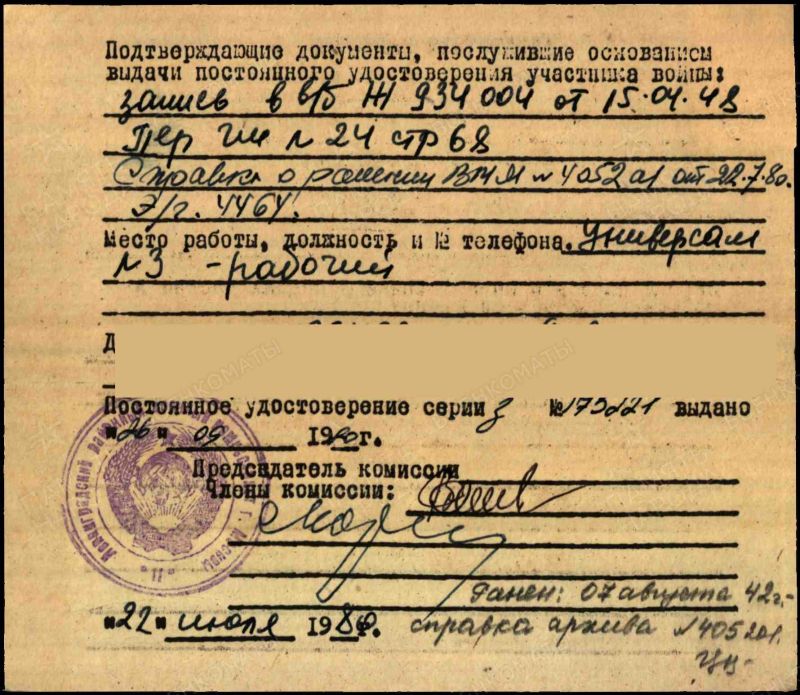 Подтверждающие документы, послужившие основанием
выдачи постоянного удостоверения участника войны:
запись в в/б Ж 934004 от 15.04.48
стр 68
Справка о ранении ВММ № 405201 от 22.7.80.
Э/г. 4464.
Место работы, должность и № телефона. Универсам
№3 - рабочий
Д
Постоянное удостоверение серии № выдано
"26" 09 1980г.
Председатель комиссии
Члены комиссии:
ранен: 07 августа 42г.-
"22" июля 1980г. справка архива № 405201.
Ленинградский районный военный комиссариат г. Москвы